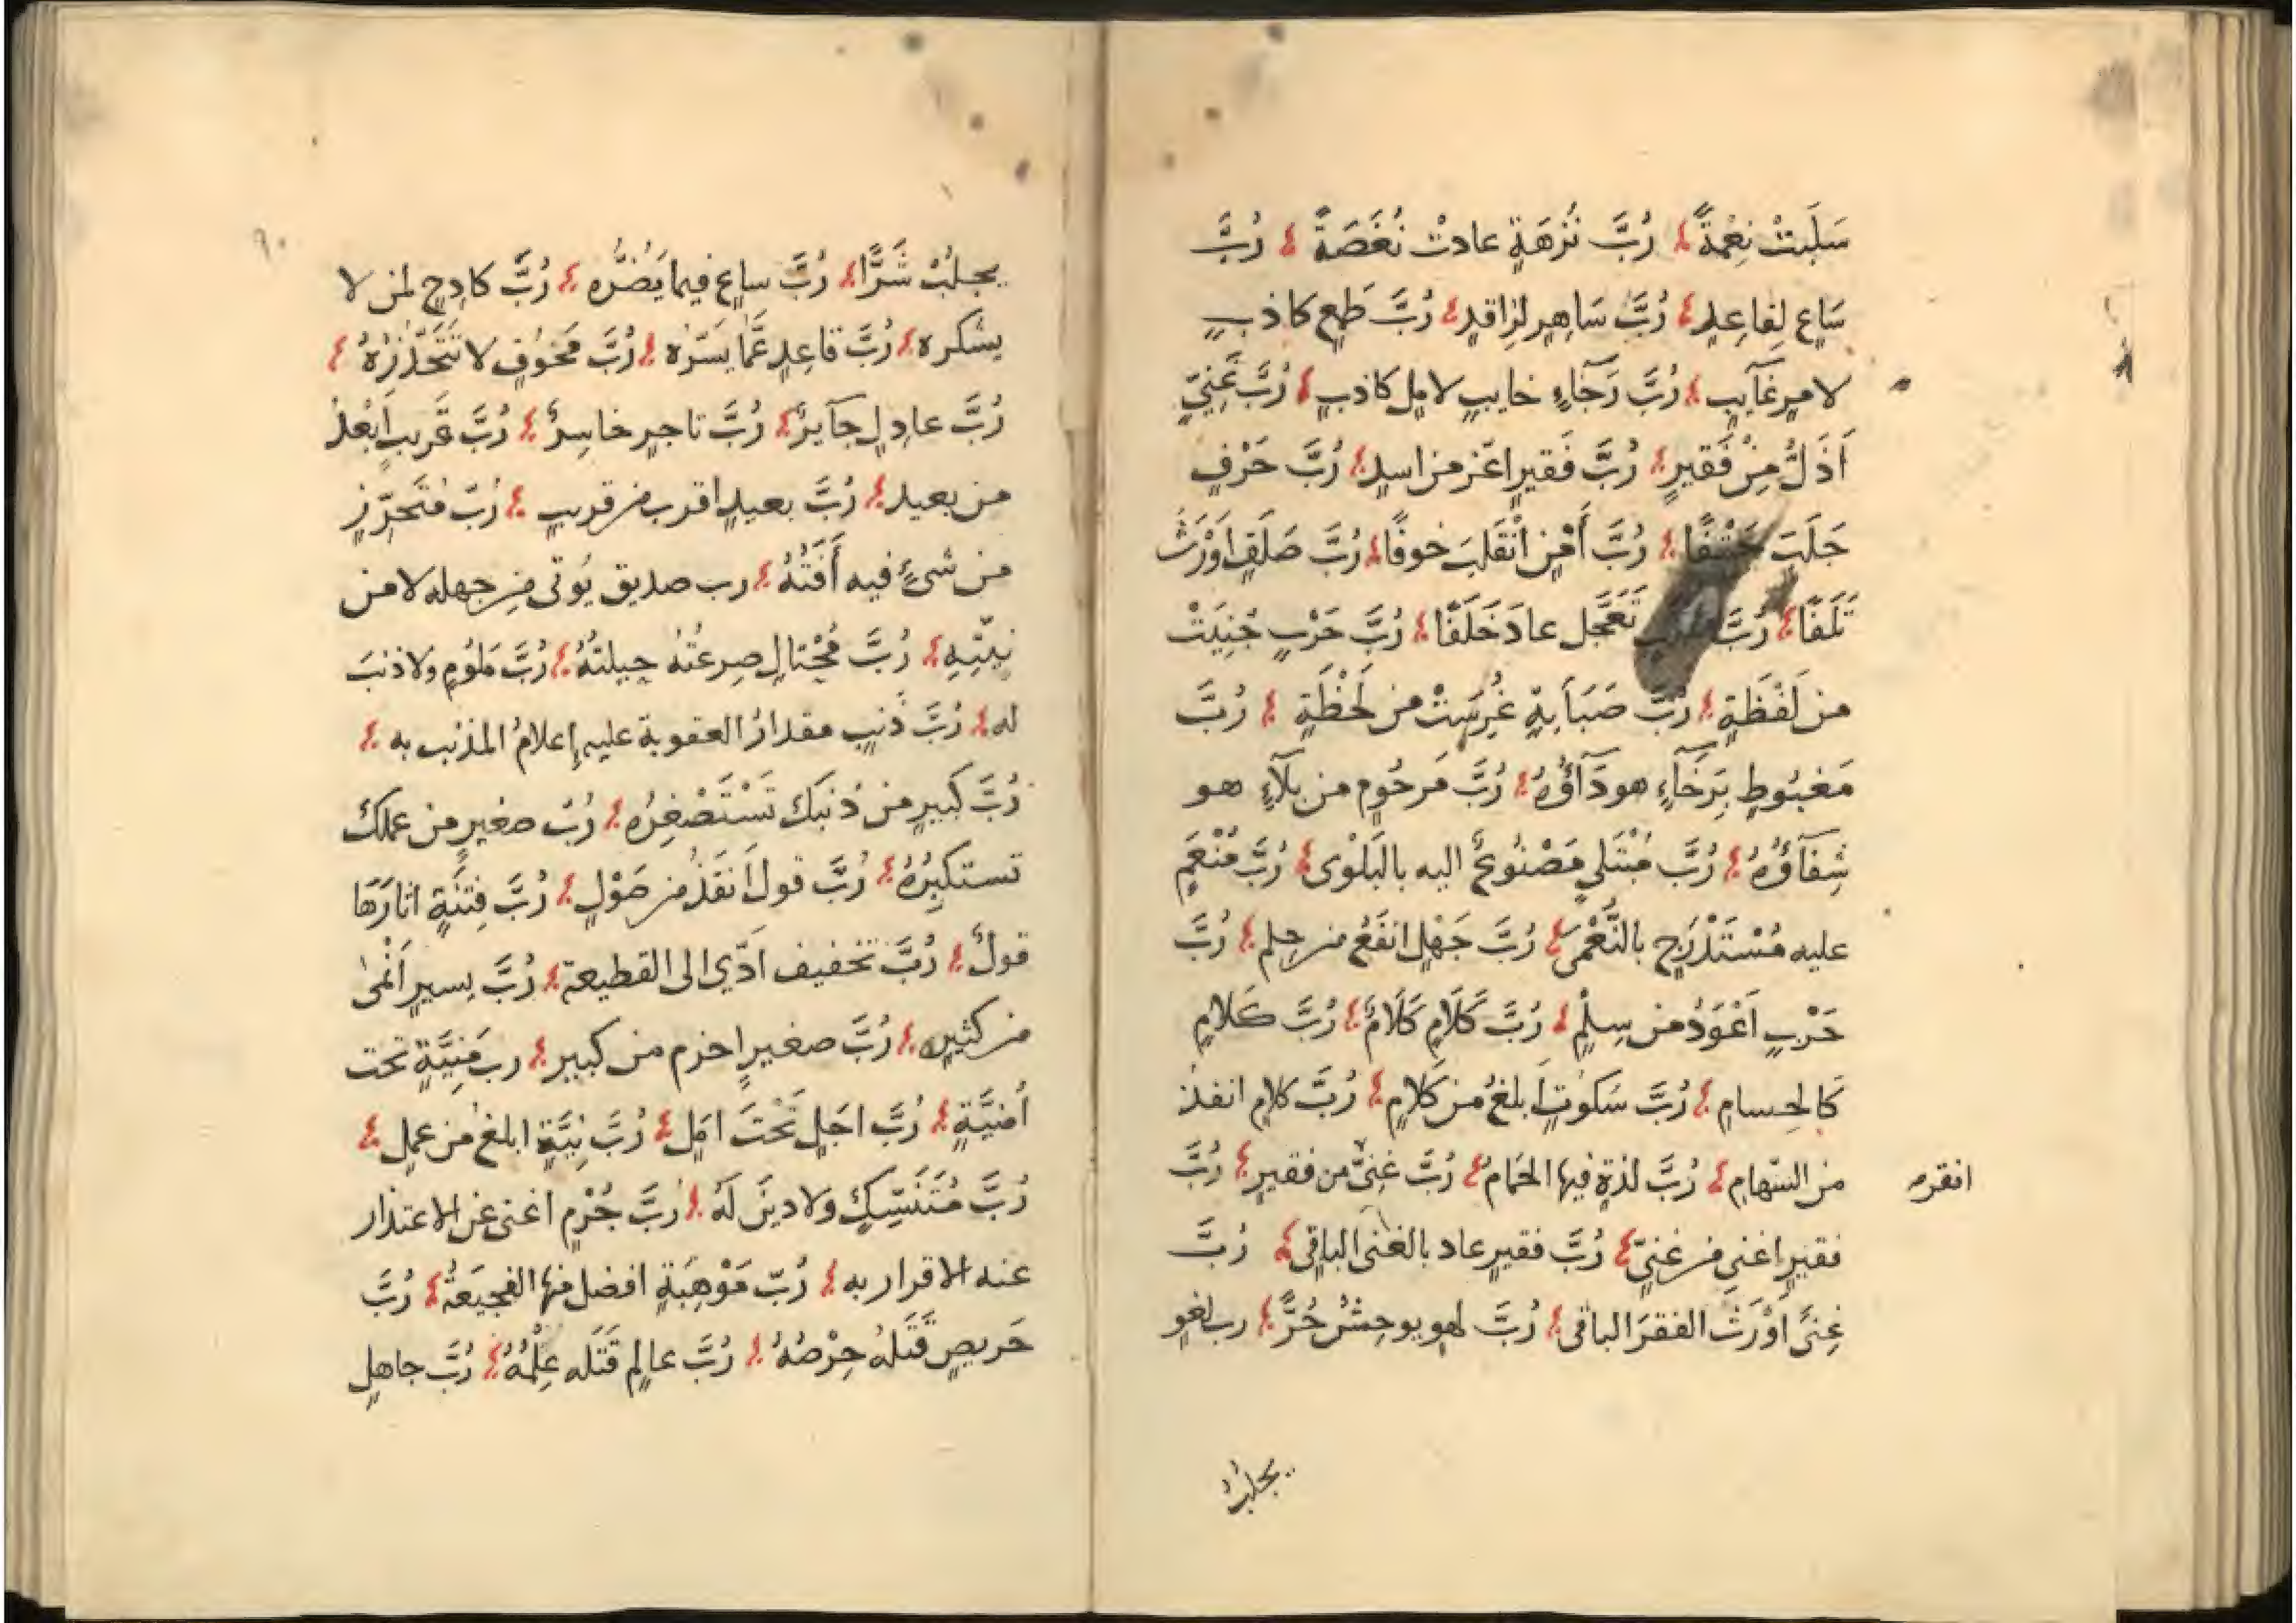 سَلَبَتْ نِعْمَةً ؛ رُبَّ نُزْهَةٍ عادتْ نُغْصَةً ؛ رُبَّ
سَاعٍ لِقاعِدٍ ؛ رُبَّ سَاهِرٍ لِرَاقدٍ ؛ رُبَّ طَمَعٍ كاذبٍ
لامرٍ غَآيبٍ ؛ رُبَّ رَجَاءٍ خايبٍ لاملٍ كاذبٍ ؛ رُبَّ غَنِيّ
اَذَلُّ مِنْ فَقيرٍ ؛ رُبَّ فَقيرٍ اعَز من اسدٍ ؛ رُبَّ حَرْفٍ
جَلَبَ حَتْفًا ؛ رُبَّ أَمْنٍ انْقَلَبَ خوفًا ؛ رُبَّ صَلَفٍ اَوْرَثَ
تَلَفًا ؛ رُبَّ تَعَجَّل عادَ خَلَفًا ؛ رُبَّ حَرْبٍ جُنِيَتْ
من لَفْظَةٍ ؛ رُبَّ صَبَابَةٍ غُرِسَتْ من لَحْظَةٍ ؛ رُبَّ
مَغبُوطٍ بِرَخَآءٍ هو دَآؤُهُ ؛ رُبَّ مَرحُومٍ من بَلآءٍ هو
شِفَآؤُهُ ؛ رُبَّ مُبْتَلى مَصْنُوعٌ اليه بالبَلْوى ؛ رُبَّ مُنْعَمٍ
عليه مُسْتَدْرَجٍ بالنُّعْمىَ ؛ رُبَّ جَهْلٍ انفَعُ من حِلم ؛ رُبَّ
حَرْبٍ اَعْوَدُ من سِلْمٍ ؛ رُبَّ كَلَامٍ كَلَامٌ ؛ رُبَّ كَلَامٍ
كَالحِسامِ ؛ رُبَّ سَكوتٍ اَبلغُ من كَلامٍ ؛ رُبَّ كلامٍ انفذُ
من السّهامِ ؛ رُبَّ لذةٍ فيها الحَمامُ ؛ رُبَّ غِنىً من فقيرٍ ؛ رُبَّ
افقر
فقيرٍ اغنى من غنيّ ؛ رُبَّ فقيرٍ عاد بالغنى الباقى ؛ رُبَّ
غِنىً اوْرَثَ الفقرَ الباقى ؛ رُبَّ لهوٍ يوحِشُ حُرًّ ؛ رب لغوٍ
يجلبُ
يجلبُ شَرًّا ؛ رُبَّ ساعٍ فيما يَضُرُّه ؛ رُبَّ كادِحٍ لمن لا
يشكره ؛ رُبَّ قاعِدٍ عَمَّا يسَرّه ؛ رُبَّ مَخوُفٍ لا تَتَحَذَّرُهُ ؛
رُبَّ عادِلٍ جَآيرٌ ؛ رُبَّ تاجرٍ خاسِرٌ ؛ رُبَّ قَريبٍ اَبْعدُ
من بعيد ؛ رُبَّ بعيدٍ اقرب من قريبٍ ؛ رُبّ مُتَحَرِّزٍ
من شىءٍ فيه أَفَتُهُ ؛ رب صديق يُوتى من جهله لا من
نِيّتِهِ ؛ رُبَّ مُحْتالٍ صرعتُهُ حيلتُهُ ؛ رُبَّ مَلوُمٍ ولا ذنبَ
له ؛ رُبَّ ذَنبٍ مقدارُ العقوبة عليه إعلامُ المذنب به ؛
رُبَّ كَبيرٍ من ذنبَك تَسْتَصْغِرُه ؛ رُبَّ صغيرٍ من عملك
تستكبِرُهُ ؛ رُبَّ قول اَنفَذُ من صَوْلٍ ؛ رُبَّ فِتْنَةٍ اثارَهَا
قولٌ ؛ رُبَّ تخفيف اَدّي الى القطيعة ؛ رُبَّ يسيرٍ اَنْمىٰ
من كثيرٍ ؛ رُبَّ صغيرٍ احزم من كبير ؛ رب مَنِيَّةٍ تحت
اُمنيَّةٍ ؛ رُبَّ اجَلٍ تَحْتَ امَلٍ ؛ رُبَّ نِيَّةٍ ابلغ من عملٍ ؛
رُبَّ مُتَنَسِّكٍ ولا دينَ لَهُ ؛ رُبَّ جُرْمٍ اغنى عن الاعتذار
عنه الاقرار به ؛ رُبّ مَوْهِبَةٍ افضل منها الفجيعَةُ ؛ رُبَّ
حَريصٍ قَتَلَهُ حِرْصُهُ ؛ رُبَّ عالِمٍ قَتَلَه عِلْمُهُ ؛ رُبَّ جاهلٍ